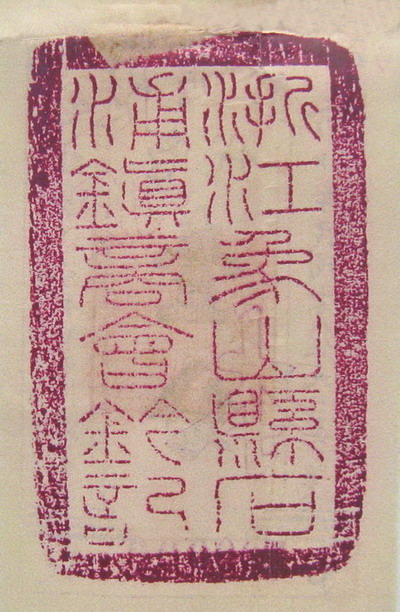 浙江象山縣石
浦鎮商會鈐記